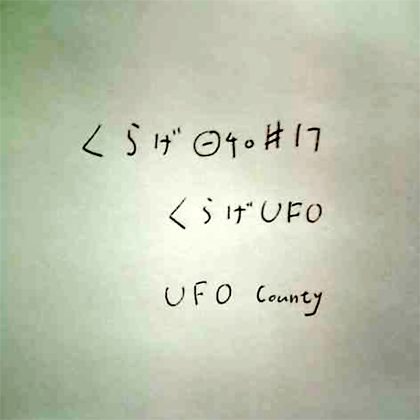 くらげ⊖40#17
くらげUFO
UFO County